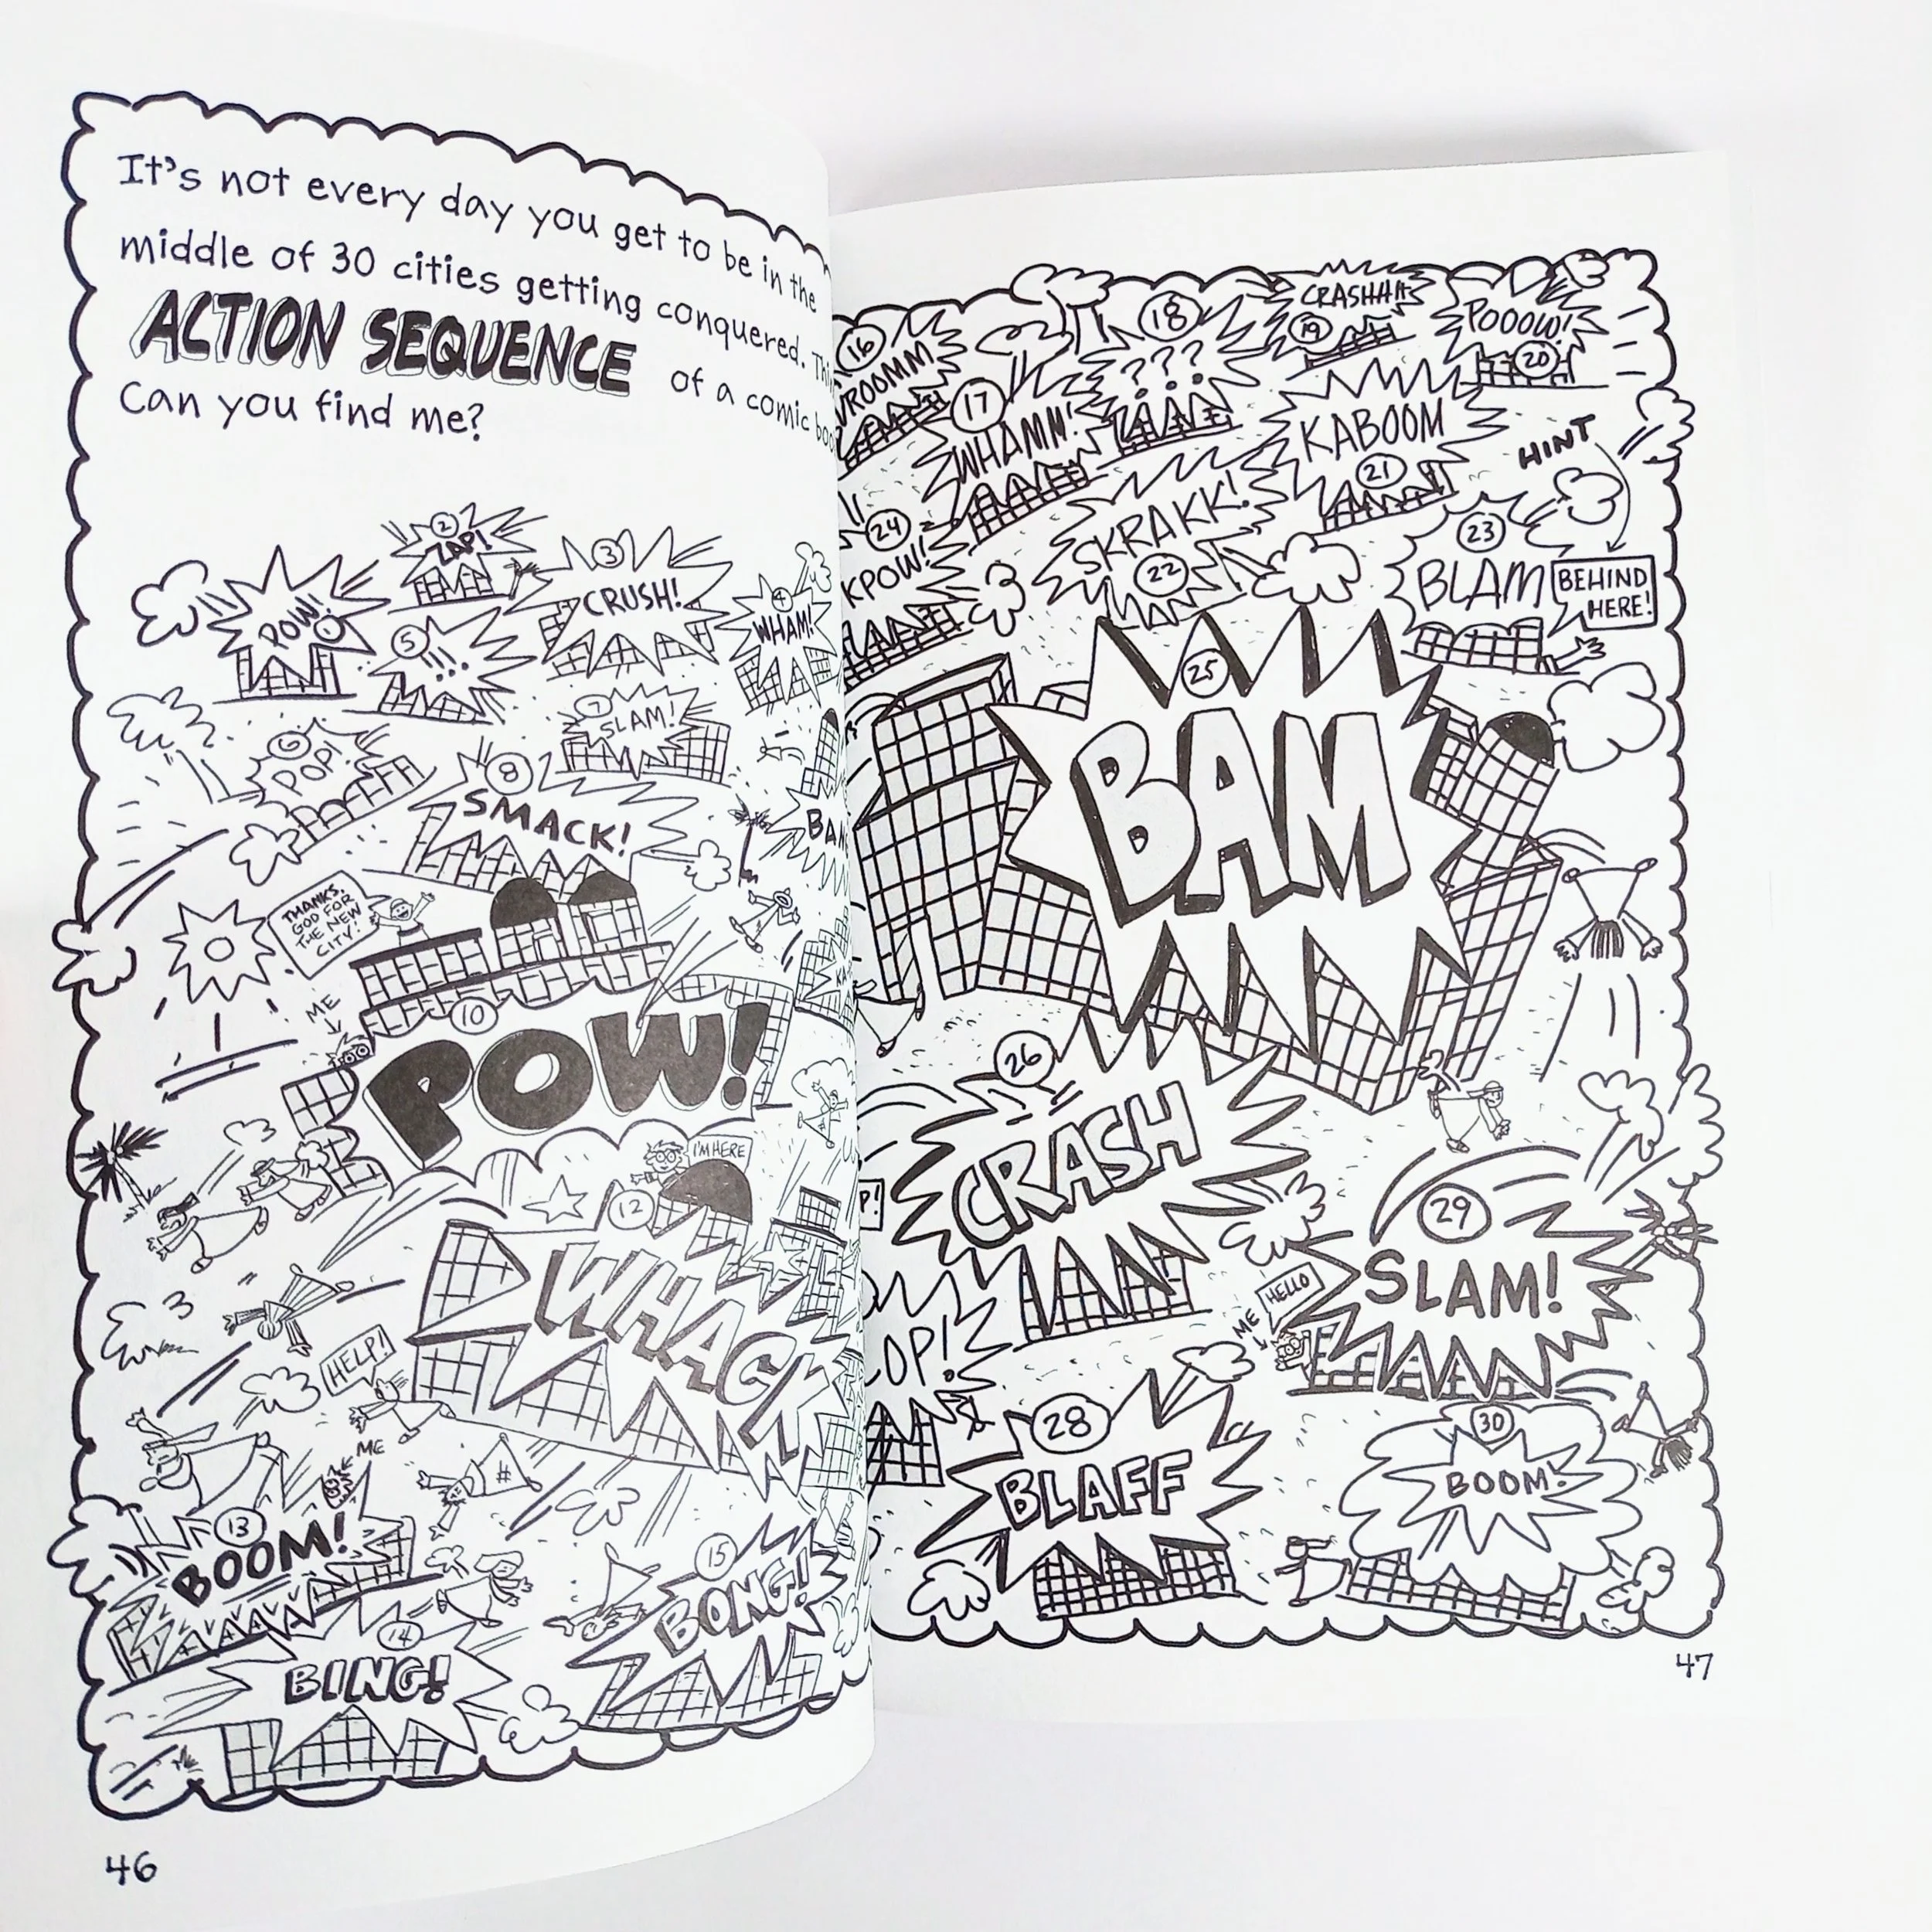 It's not every day you get to be in the
middle of 30 cities getting conquered.
ACTION SEQUENCE of a comic
Can you find me?
2
ZAP!
3
CRUSH!
POW!
1
4
WHAM!
5
!!!
7
SLAM!
6
POP!
8
SMACK!
THANKS,
GOD FOR
THE NEW
CITY!
ME
10
POW!
I'M HERE
12
WHACK
HELP!
ME
13
BOOM!
14
BING!
15
BONG!
46
16
VROOMM
17
WHAMM!
18
???
CRASHHH
19
POOOW!
20
KABOOM
21
HINT
24
KPOW!
SKRAKK!
22
23
BLAM
BEHIND
HERE!
25
BAM
26
CRASH
29
SLAM!
HELLO
ME
28
BLAFF
30
BOOM!
47